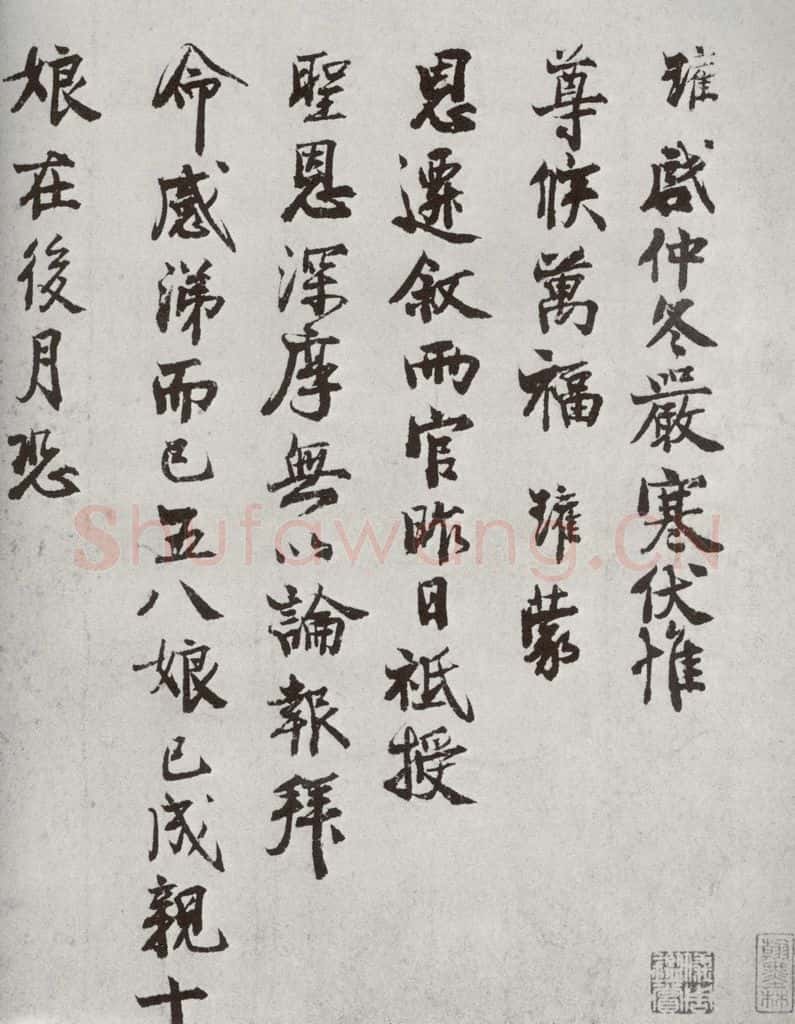 瓘啟仲冬嚴寒伏惟
尊候萬福 瓘蒙
恩遷叙兩官昨日祗授
聖恩深厚無以論報拜
命感涕而已五八娘已成親十
娘在後月恐
Shufawang.CN